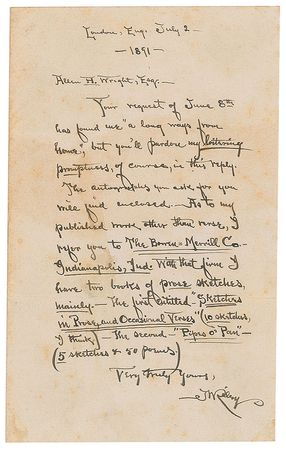 London, Eng. July 2 —
— 1891 —
Allen H. Wright, Esq. —
Your request of June 8th
has found me "a long ways from
home", but you'll pardon my loitering
promptness, of course, in this reply.
The autographs you ask for you
will find enclosed. — As to my
published work other than verse, I
refer you to The Bowen-Merrill Co.
Indianapolis, Ind. With that firm I
have two books of prose sketches,
mainly — The first entitled "Sketches
in Prose, and Occasional Verses" (10 sketches,
I think,) — The second — "Pipes o' Pan" —
(5 sketches & 50 poems)
Very Truly Yours,
JWRiley